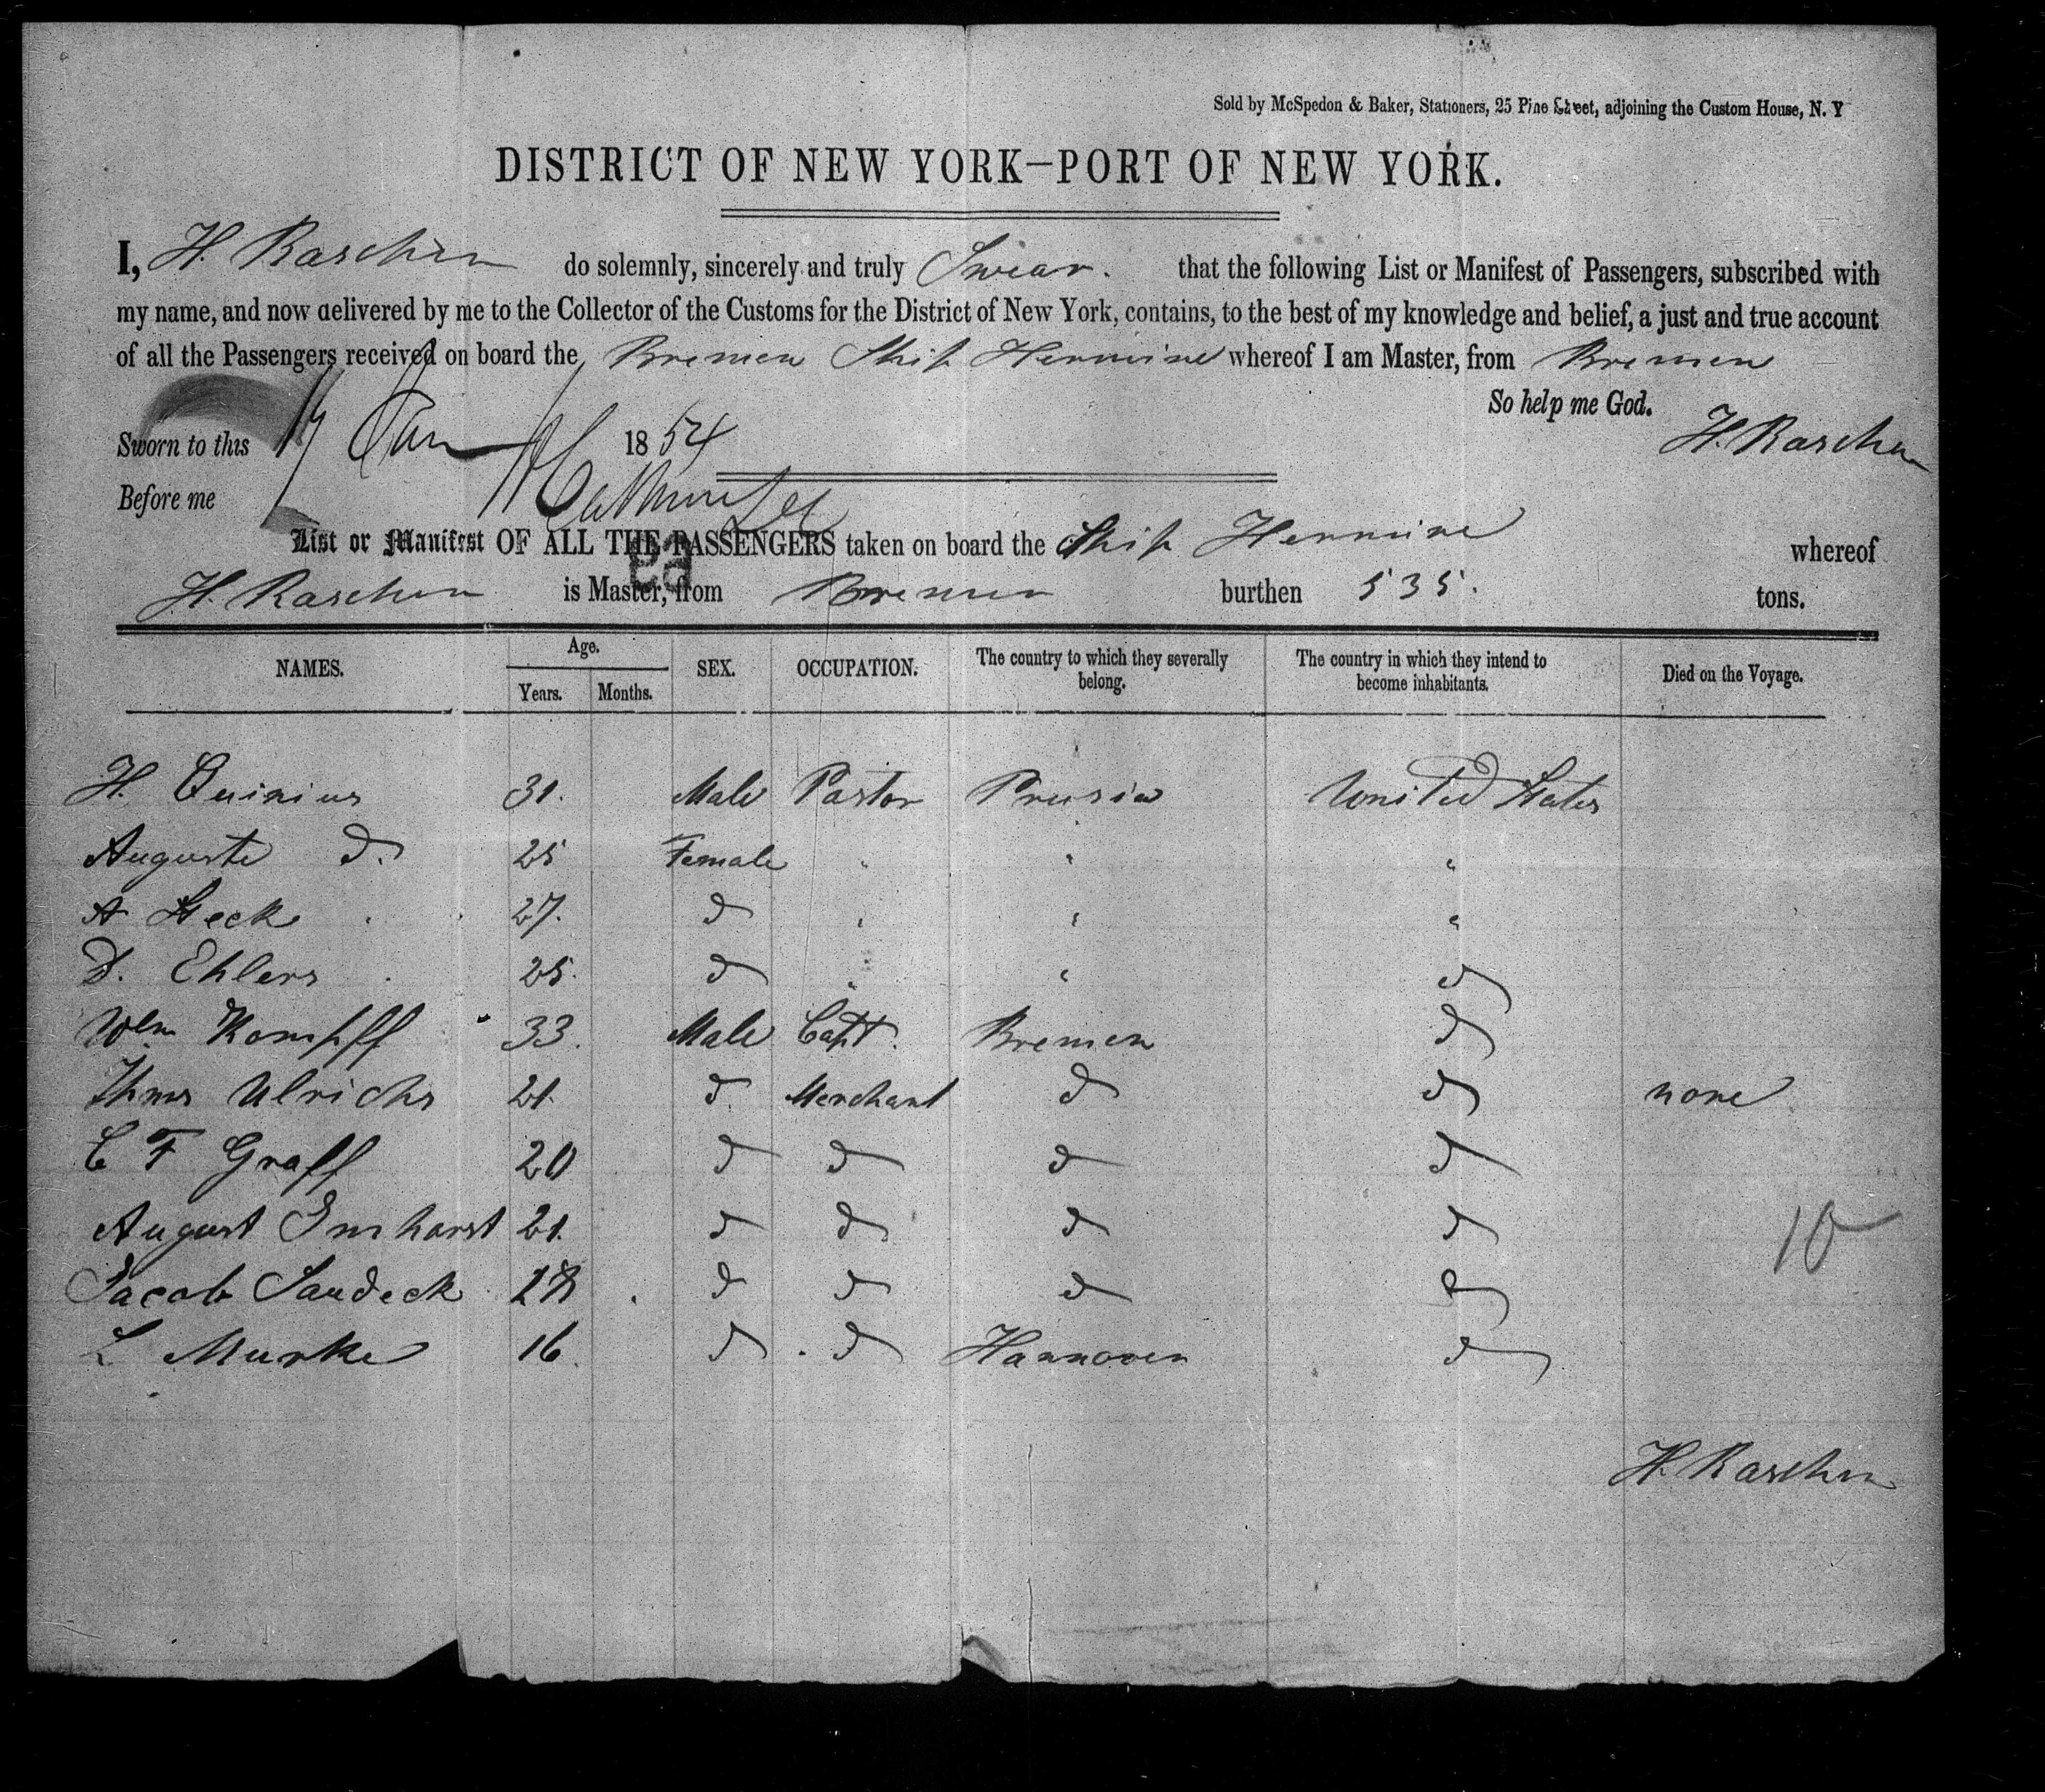 Sold by McSpedon & Baker, Stationers, 25 Pine Street, adjoining the Custom House, N. Y
DISTRICT OF NEW YORK—PORT OF NEW YORK.
I, H. Raschen do solemnly, sincerely and truly Swear. that the following List or Manifest of Passengers, subscribed with
my name, and now delivered by me to the Collector of the Customs for the District of New York, contains, to the best of my knowledge and belief, a just and true account
of all the Passengers received on board the Bremen Ship Hermine whereof I am Master, from Bremen
So help me God.
H. Raschen
Sworn to this 17 Jan 1854
Before me
List or Manifest OF ALL THE PASSENGERS taken on board the Ship Hermine whereof
H. Raschen is Master, from Bremen burthen 535. tons.
NAMES. Age. Years. Months. SEX. OCCUPATION. The country to which they severally belong. The country in which they intend to become inhabitants. Died on the Voyage.
H. Quinius 31. Male Pastor Prusia United States
Auguste d. 25 Female " " "
A Heck 27. d " " "
D. Ehlers 25. d " " d
Wlm Kompff 33. Male Capt. Bremen d
Thms Ulrichs 21. d Merchant d d none
C F Graff 20 d d d d
August Imhorst 21. d d d d
10
Jacob Sandeck 18 d d d d
L Murke 16. d d Hannover d
H. Raschen